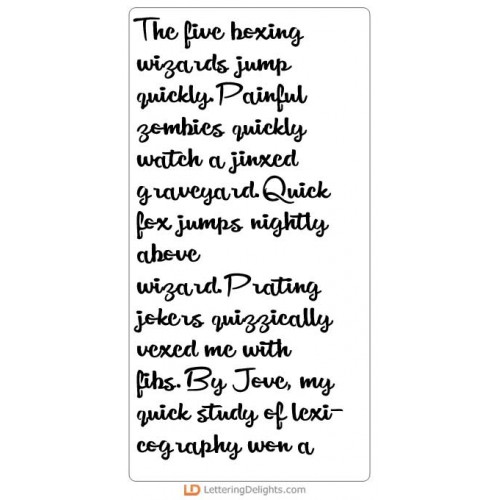 The five boxing
wizards jump
quickly. Painful
zombies quickly
watch a jinxed
graveyard. Quick
fox jumps nightly
above
wizard. Prating
jokers quizzically
vexed me with
fibs. By Jove, my
quick study of lexi-
cography won a
LD LetteringDelights.com